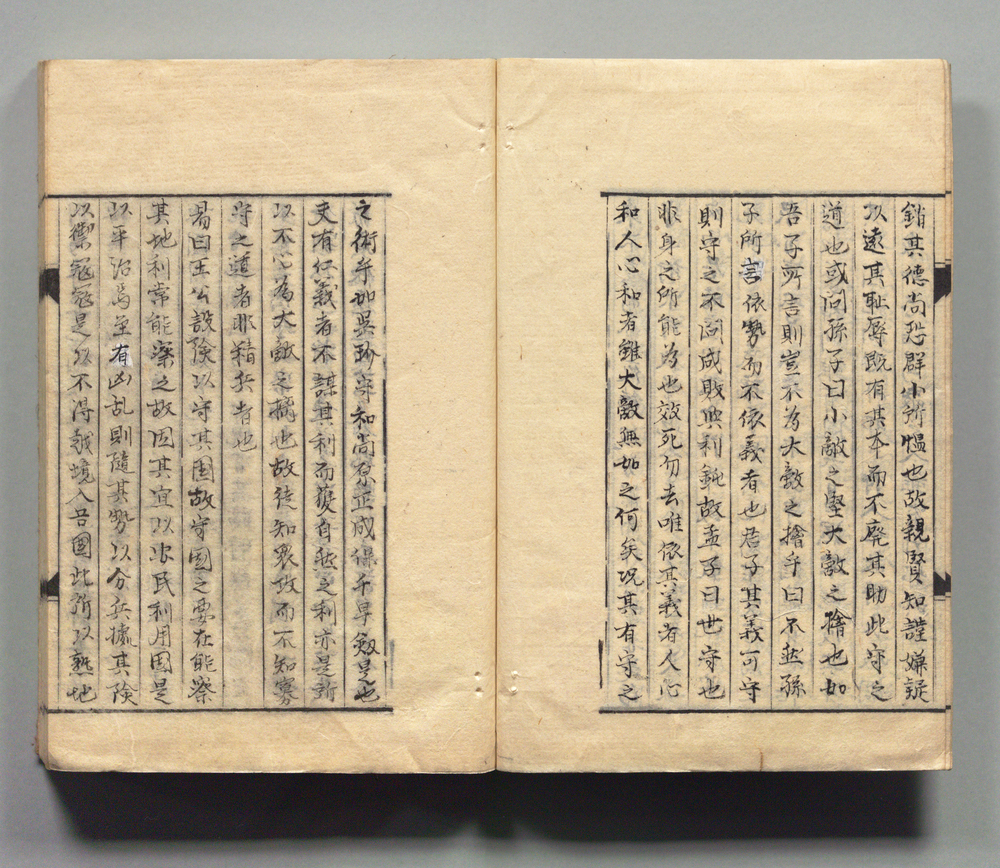 銷其德尚恐群小所慍也故親賢知謹嫌疑
以遠其恥辱既有其本而不廃其助此守之
道也或问孫子曰小敵之堅大敵之擒也如
吾子所言則豈不為大敵之擒乎曰不然孫
子所言依勢而不依義者也君子其義可守
則守之不问成敗與利鈍故孟子曰世守也
非身之所能為也效死勿去唯依其義者人心
和人心和者雖大敵無如之何矣况其有守之
之術乎如吳玠守和尚原正成保千早剱是也
夫有仁義者不謀其利而獲自然之利亦是所
以不必為大敵之擒也故徒知衆攻而不知寡
守之道者非精兵者也
易曰王公設険以守其国故守国之要在能察
其地利常能察之故因其宜以安民利用固是
以平治焉至有凶乱則隨其勢以分兵據其険
以禦寇寇是以不得越境入吾國此所以熟地